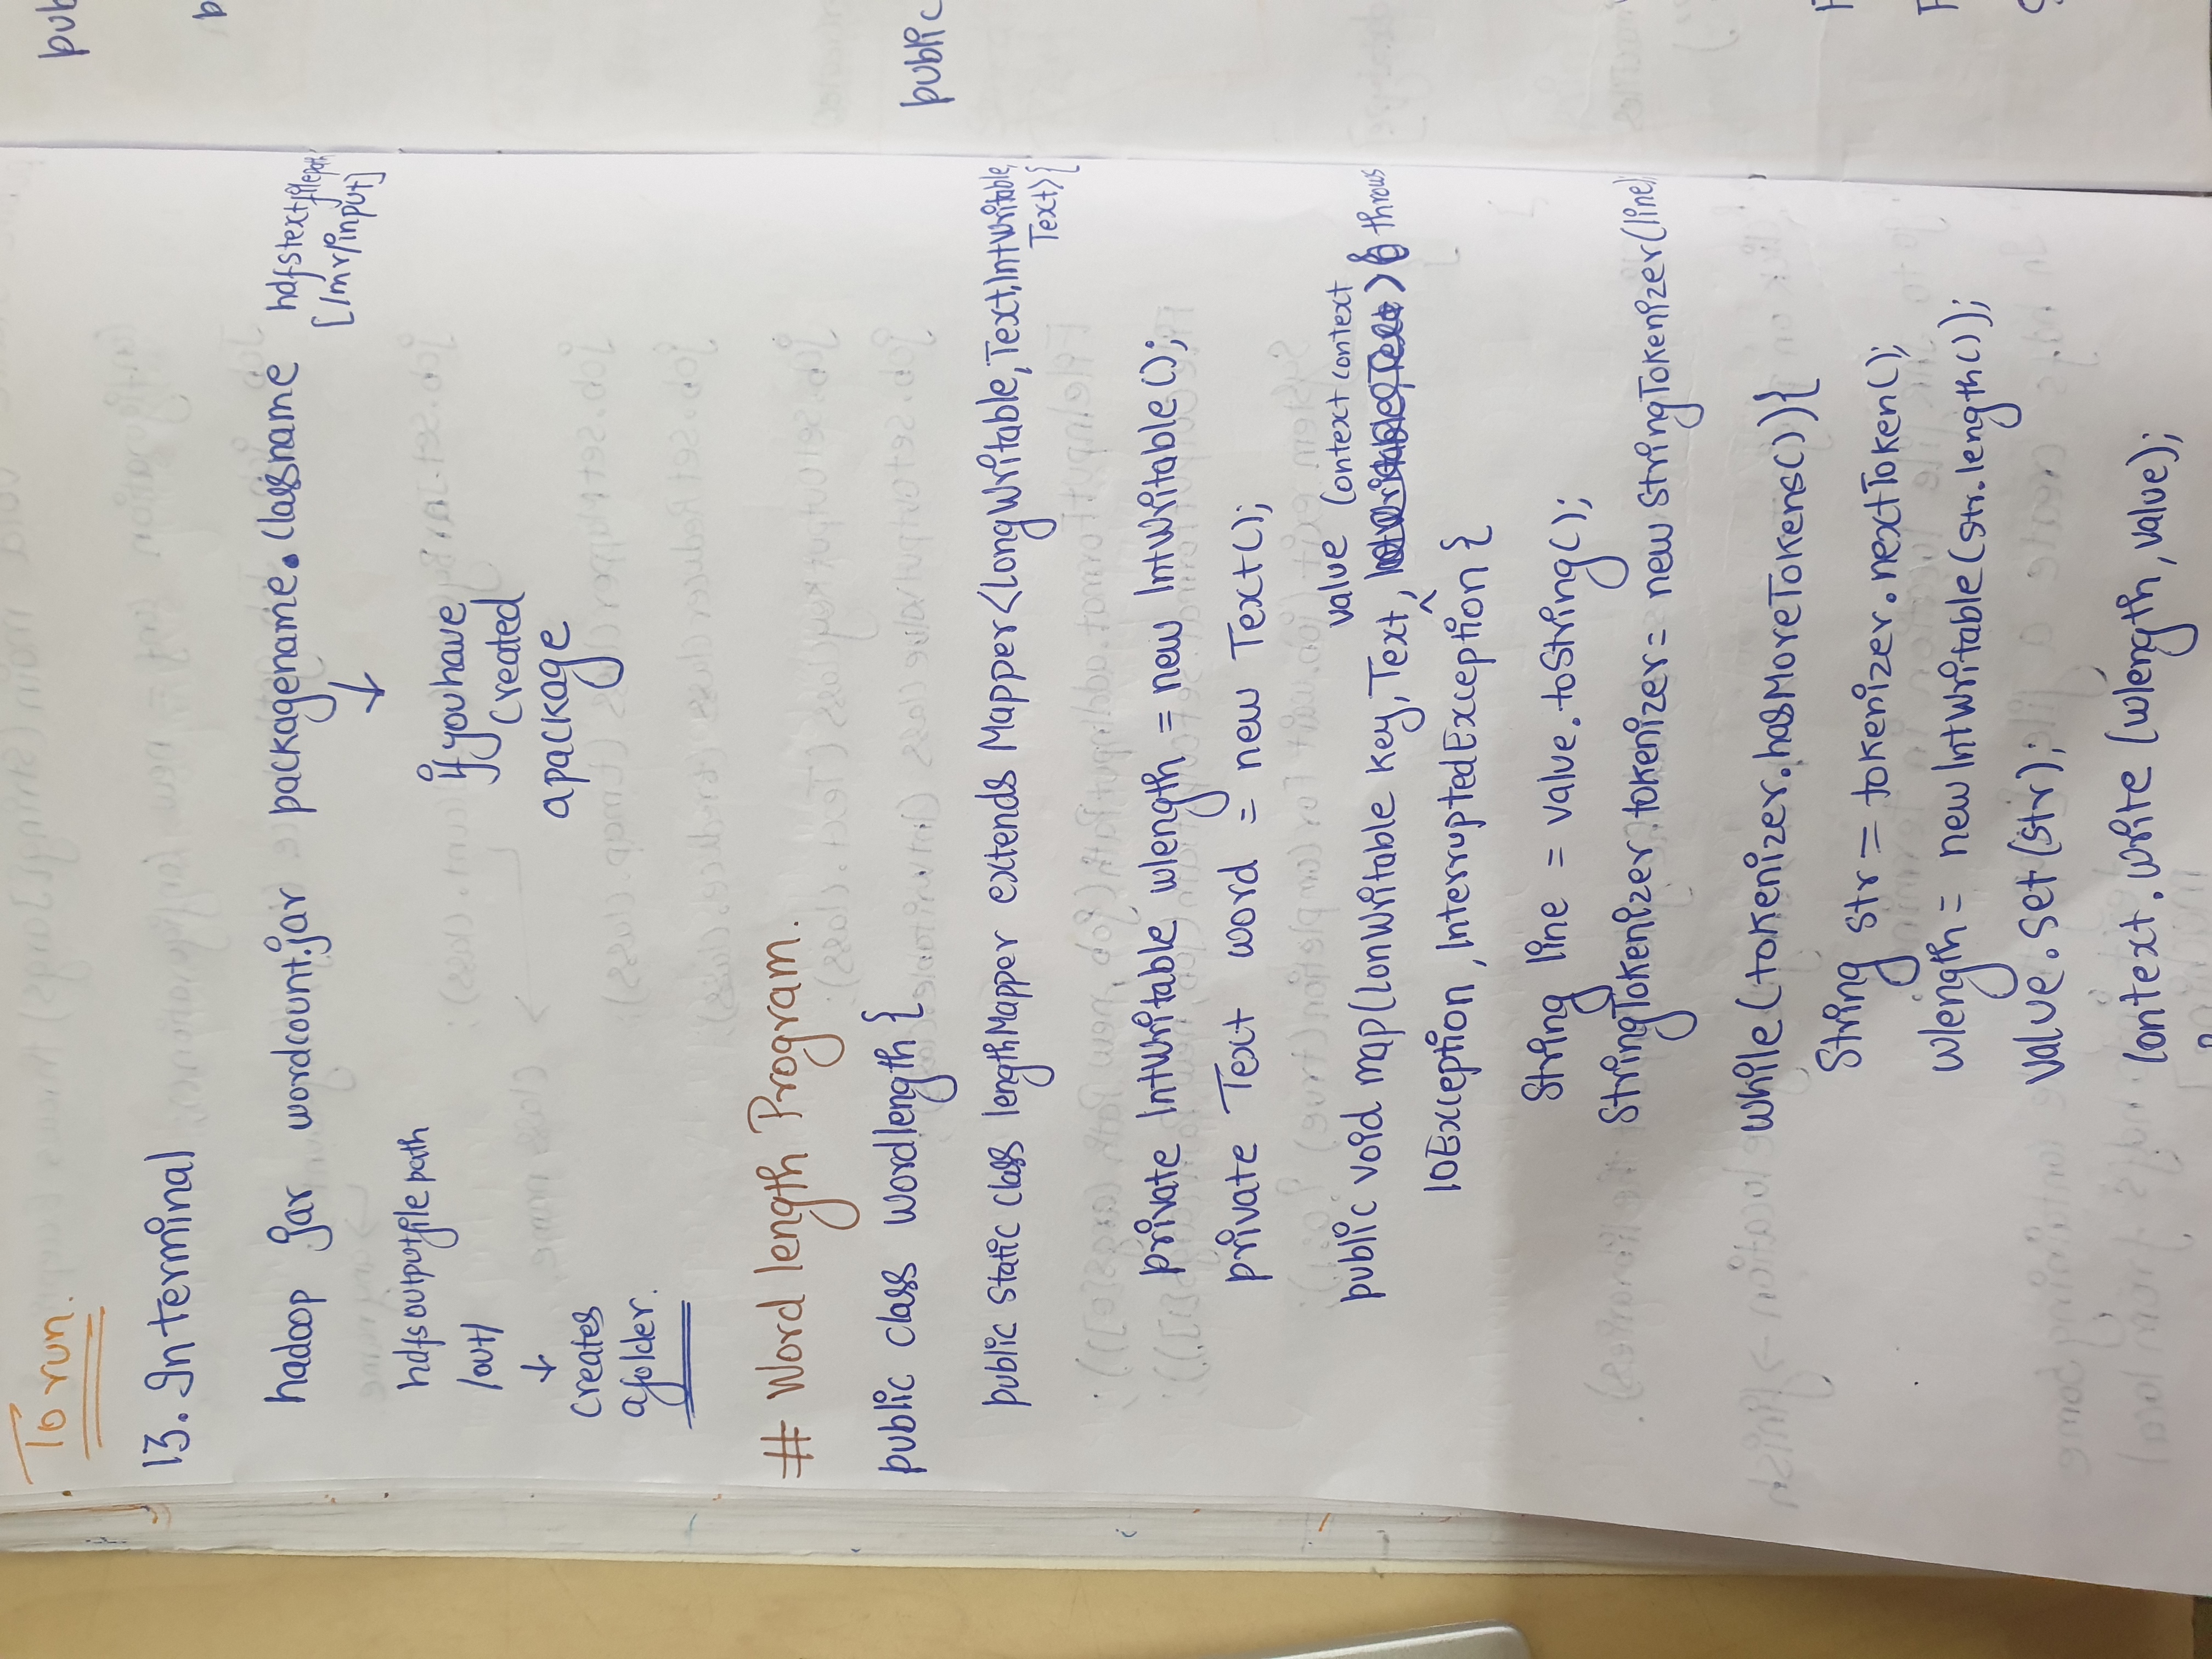 To run.
13. In terminal
hadoop jar wordcount.jar packagename.classname hdfstextfilepath
[/mr/input]
hdfs outputfile path
/out/
↓
Creates
a folder.
↓
if you have
created
a package
# Word length Program.
public class Wordlength {
public static class lengthMapper extends Mapper<LongWritable, Text, IntWritable,
Text>{
private IntWritable wlength = new IntWritable();
private Text word = new Text();
value Context context
public void map(LonWritable key, Text, ) throws
IOException, InterruptedException {
String line = value.toString();
StringTokenizer tokenizer = new StringTokenizer(line);
while (tokenizer.hasMoreTokens()){
String str = tokenizer.nextToken();
wlength = new IntWritable(str.length());
value.set(str);
context.write (wlength, value);
pub
public